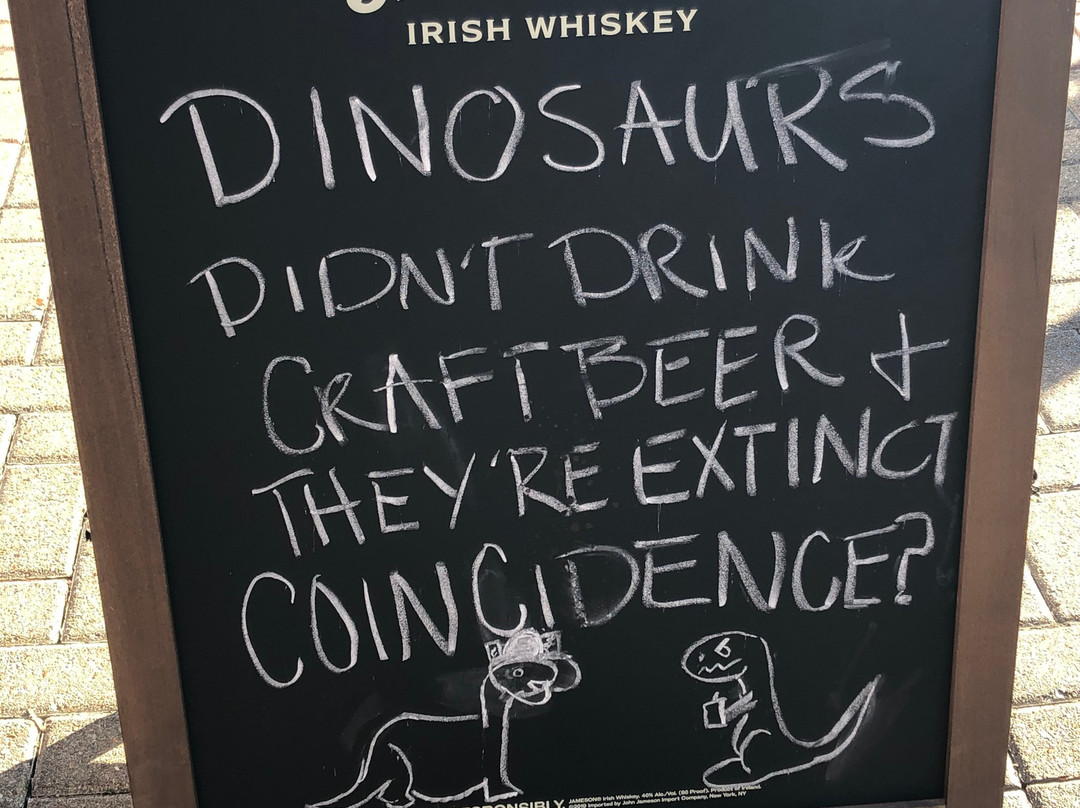 IRISH WHISKEY
DINOSAURS
DIDN'T DRINK
CRAFT BEER +
THEY'RE EXTINCT
COINCIDENCE?
JAMESON® Irish Whiskey. 40% Alc./Vol. (80 Proof). Product of Ireland.
©2019 Imported by John Jameson Import Company, New York, NY